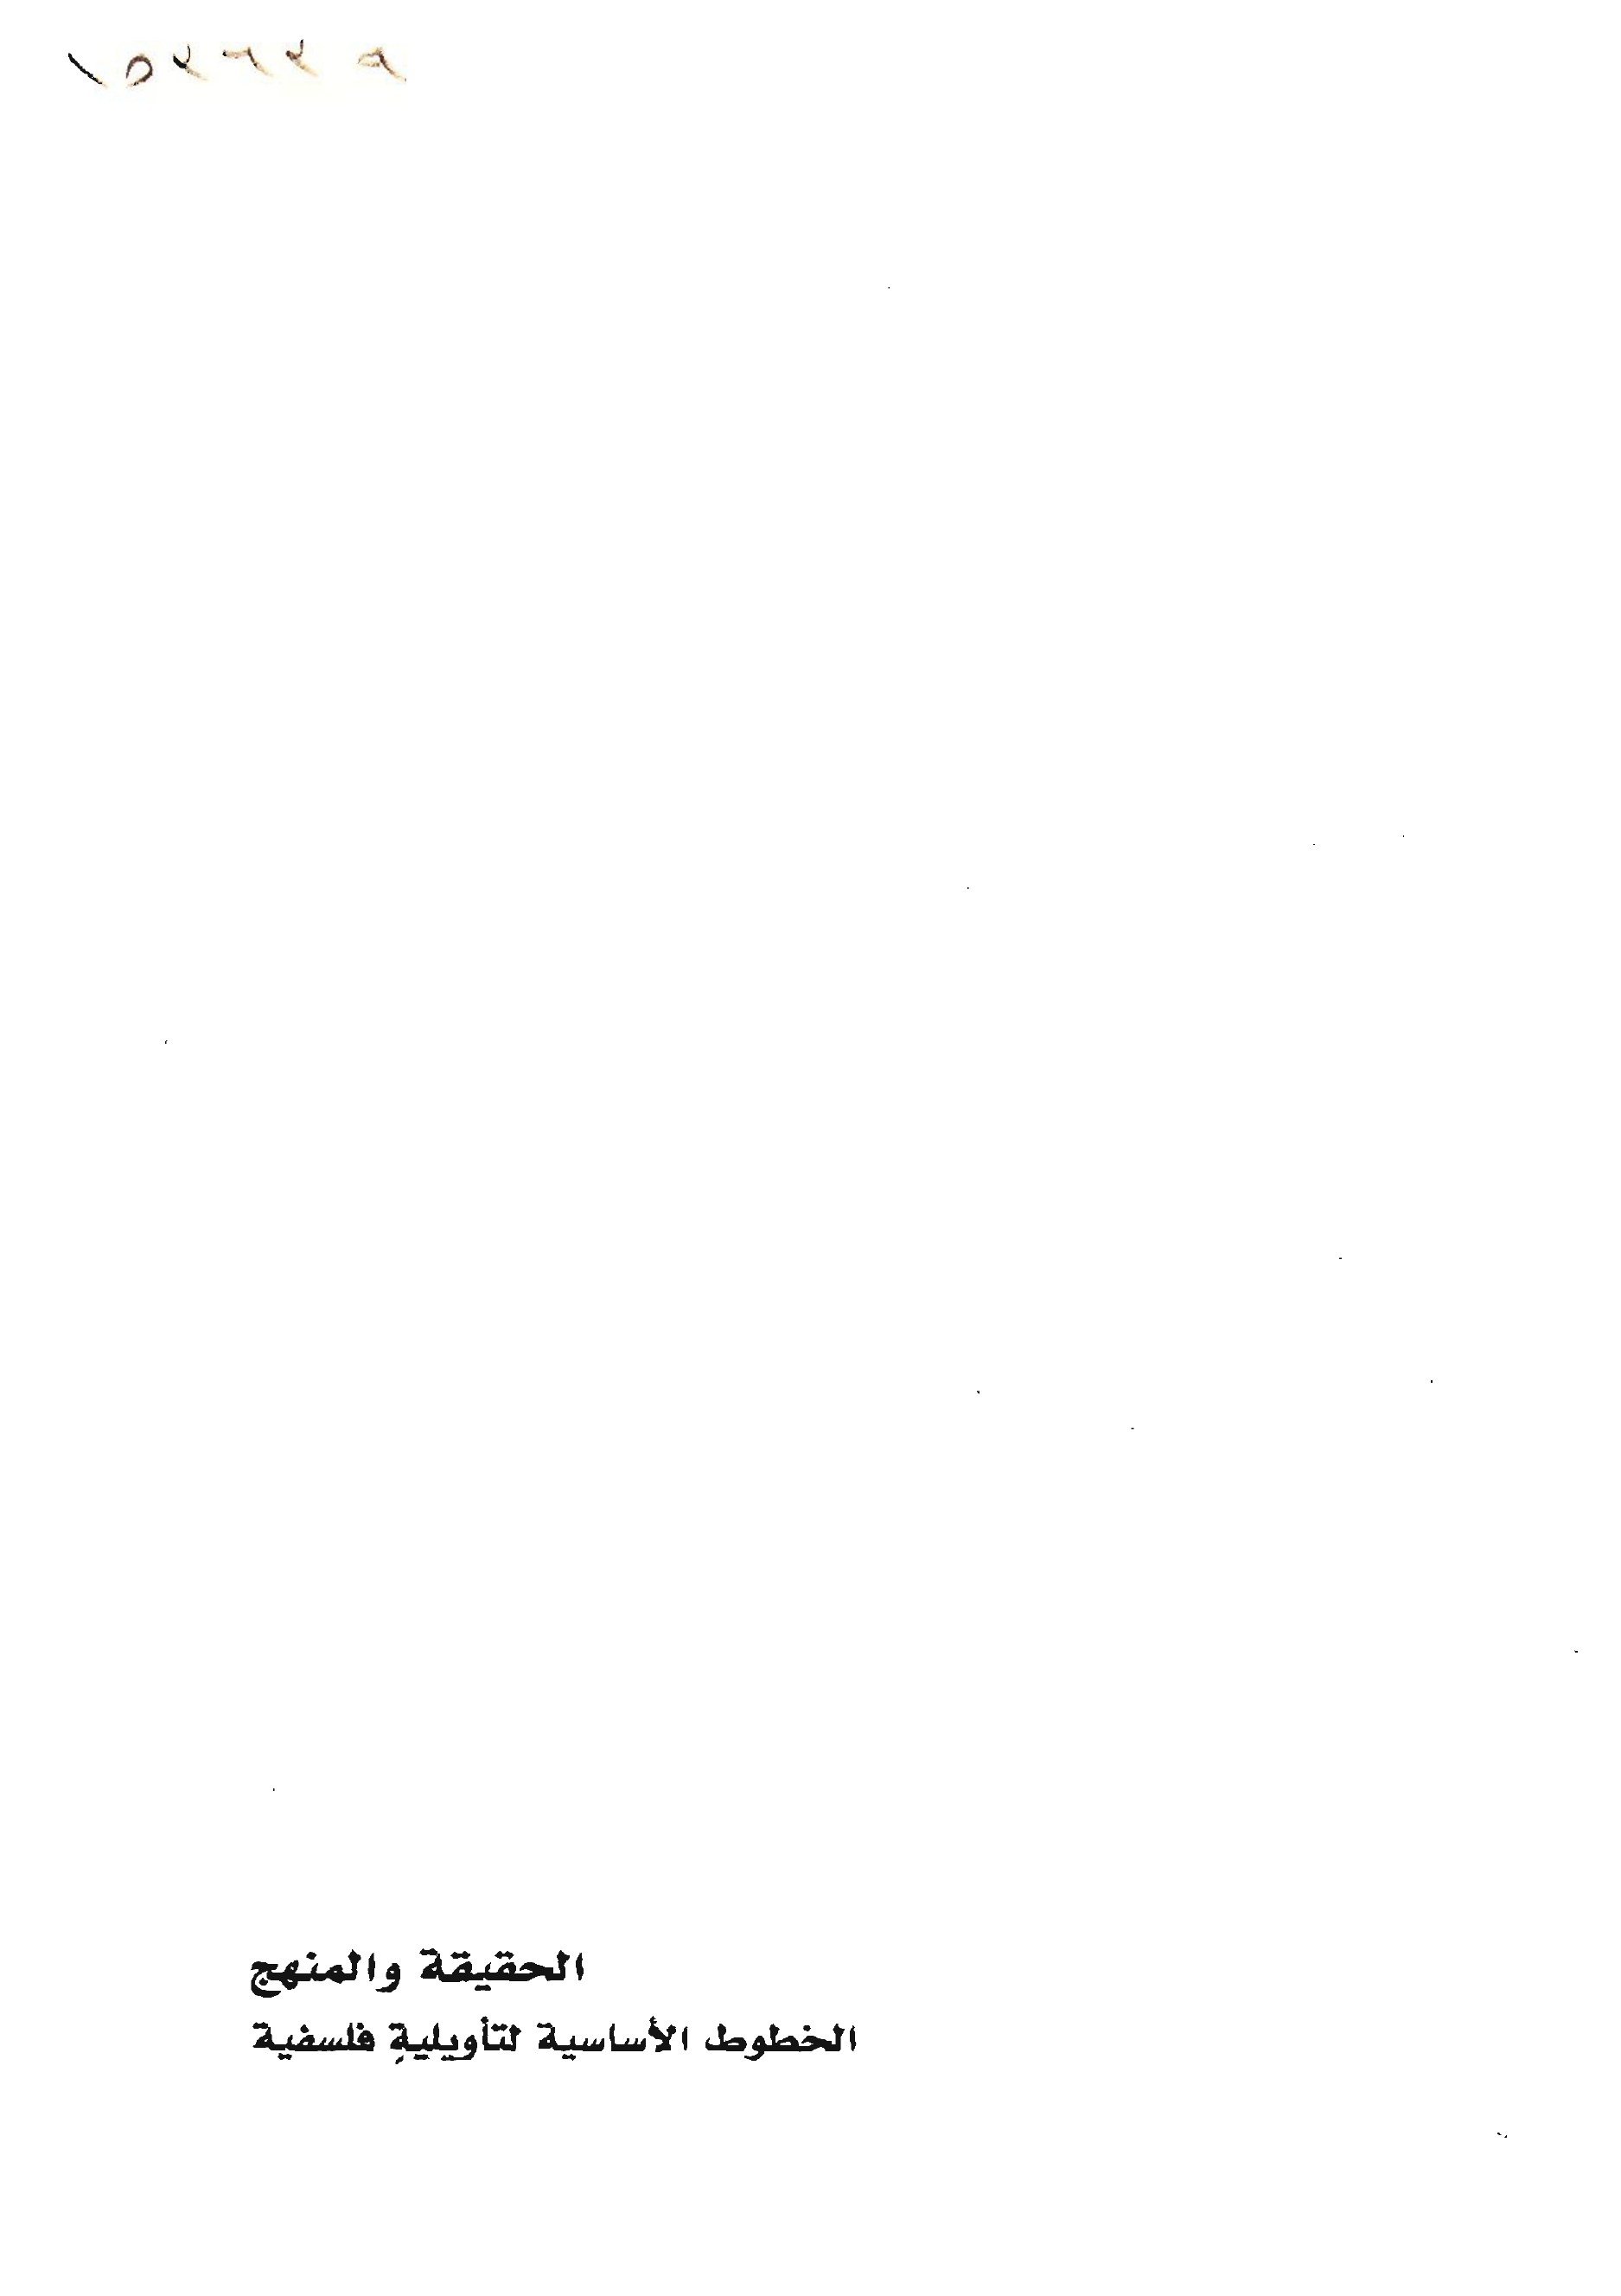 ١٥٢٦٢٩
الحقيقة والمنهج
الخطوط الأساسية لتأويليةٍ فلسفية